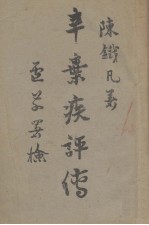 陳鐵凡著
辛棄疾評傳
署檢